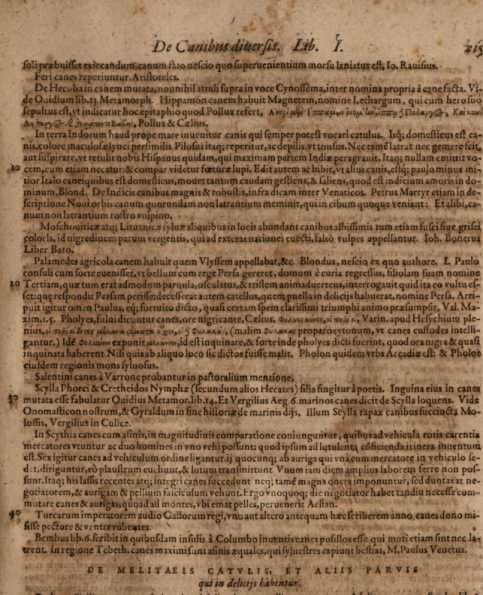 De Canibus diuersis. Lib. I.
soli præbuisset exsecandum, canum suo nescio quo superuenientium morsu laniatus est, Io. Rauisius.
Feri canes reperiuntur, Aristoteles.
De Hecuba in canem mutata, nonnihil attuli supra in voce Cynossema, inter nomina propria à cane facta. Vi-
de Ouidium lib.13. Metamorph. Hippæmon canem habuit Magnetem, nomine Lethargum, qui cum hero suo
sepultus est, vt indicatur hoc epitaphio quod Pollux refert,
Pollux & Cælius.
In terra Indorum haud prope mare inuenitur canis qui semper potest vocari catulus. Isq; domesticus est ca-
nis, colore maculoso lynci persimilis. Pilosus itaq; reperitur, ac depilis, vt tonsus. Nec tamen latrat nec gemere scit,
aut suspirare, vt retulit nobis Hispanus quidam, qui maximam partem Indiæ peragrauit. Itaq; nullam emittit vo-
10 cem, cum etiam necatur: & compar videtur fœturæ lupi. Edit autem ac bibit, vt alius canis, estq; paulo minus mi-
tior Italo cane quibus est domesticus, mouet tantum caudam gestiens, & saliens, quod est indicium amoris in do-
minum, Blond. De Indicis canibus magnis & robustis, infra dicam inter Venaticos. Petrus Martyr etiam in de-
scriptione Noui orbis canum quorundam non latrantium meminit, qui in cibum quoque veniant: Et alibi, ca-
num non latrantium rostro vulpino.
Moschouiticæ atq; Lituanicæ syluæ aliquibus in locis abundant canibus altissimis
coloris, id nigredinem parum vergentis, qui ad exteras nationes vecti, falso vulpes appellantur. Ioh. Bonerus
Liber Baro.
Palamedes agricola canem habuit quem Vlyssem appellabat, &c. Blondus, nescio ex quo authore. L. Paulo
consuli cum sorte euenisset, vt bellum cum rege Persa gereret, domum è curia regressus, filiolam suam nomine
20 Tertiam, quæ tum erat admodum paruula, osculatus, & tristem animaduertens, interrogauit quid ita eo vultu es-
set: quæ respondit Persam perisse: decesserat autem catellus, quem puella in delicijs habuerat, nomine Persa. Arri-
puit igitur omen Paulus, eq; fortuito dicto, quasi certam spem clarissimi triumphi animo præsumpsit, Val. Ma-
xim. 1. 5. Pholyes, fului dicuntur canes, ore nigricante, Cælius. Varin. apud Hesychium ple-
nius, (malim properispomenum, vt canes custodes intelli-
gantur.) Idē exponit id est inquinare, & forte inde pholyes dicti fuerint, quod ora nigra & quasi
inquinata haberent. Nisi quis ab aliquo loco sic dictos fuisse malit. Pholon quidem vrbs Arcadiæ est: & Pholoë
eiusdem regionis mons syluosus.
Salentini canes à Varrone probantur in pastoralium mentione.
Scylla Phorci & Cretheidos Nymphæ (secundum alios Hecates) filia fingitur à poetis. Inguina eius in canes
30 mutata esse fabulatur Ouidius Metamor. lib. 14. Et Vergilius Aeg. 6. marinos canes dicit de Scylla loquens. Vide
Onomasticon nostrum, & Gyraldum in fine historiæ de marinis dijs. Illum Scylla rapax canibus succincta Mo-
lossis, Vergilius in Culice.
In Scythia canes cum asinis, in magnitudinis comparatione coniunguntur, quibus ad vehicula rotis carentia
mercatores vtuntur ac duo homines in vno vehi possunt: quod ipsum ad lutulenti, conficienda itinera inuentum
est. Sex igitur canes ad vehiculum ordine ligantur ij quocunq; ab auriga qui vna cum mercatore in vehiculo se-
det, diriguntur, eò plaustrum euehunt, & lutum transmittunt. Vnum iam diem amplius laborem ferre non pos-
sunt. Itaq; his lassis recentes atq; integri canes succedunt neq; tamē magna onera imponuntur, sed duntaxat ne-
gotiatorem, & aurigam & pellium fasciculum vehunt. Ergo vnoquoq; die negotiator habet tandiu necesse com-
mutare canes & aurigas, quoad ad montes, vbi emat pelles, peruenerit. Aelian.
40 Turcarum imperatorem audio Gallorum regi, vno aut altero antequam hæc scriberem anno, canes dono mi-
sisse pectore & ventre rubentes.
Bembus lib. 6. scribit in quibusdam insulis à Columbo inuentis canes pilosos esse qui moti etiam sint nec la-
trent. In regione Tebeth, canes maximi sunt asinis æquales, qui syluestres capiunt bestias, M. Paulus Venetus.
DE MELITAEIS CATVLIS, ET ALIIS PARVIS
qui in delicijs habentur.